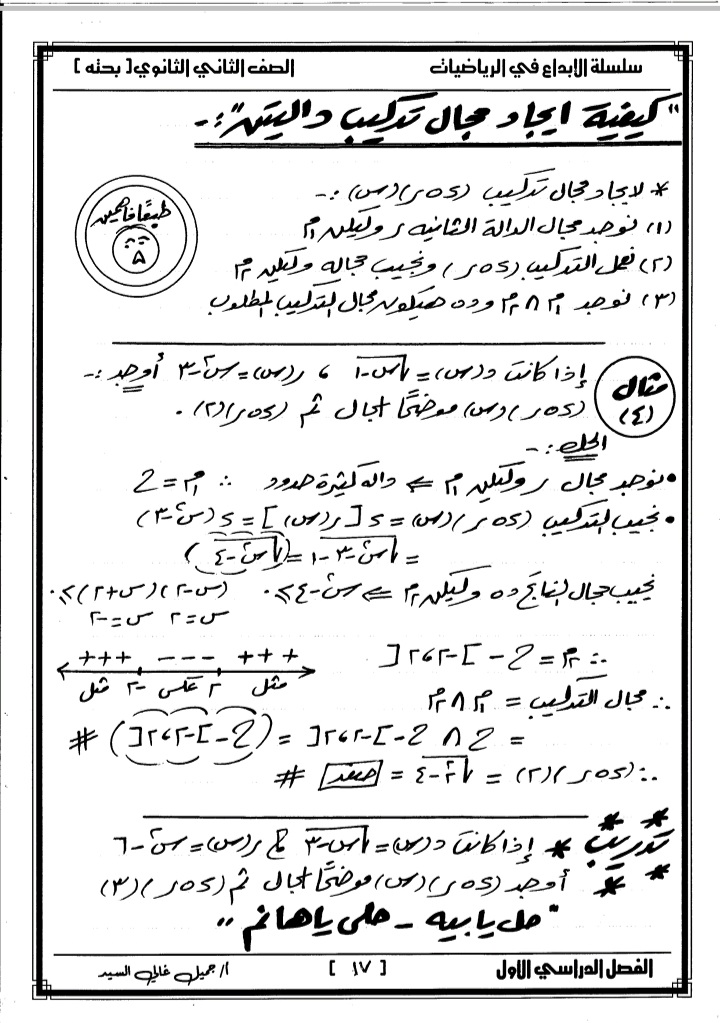 سلسلة الإبداع في الرياضيات
الصف الثاني الثانوي [ بحته ]
"كيفية ايجاد مجال تركيب دالتين" :-
طبعًا فاهمين
* لايجاد مجال تركيب (د∘ر)(س) :-
(١) نوجد مجال الدالة الثانيه ر وليكن م١
(٢) نعمل التركيب (د∘ر) ونجيب مجاله وليكن م٢
(٣) نوجد م١ ∩ م٢ وده هيكون مجال التركيب المطلوب
مثال (٤)
إذا كانت د(س) = √(س-١) ، ر(س) = س²-٣ أوجد :-
(د∘ر)(س) موضحًا المجال ثم (د∘ر)(٢) .
الحل :-
• نوجد مجال ر وليكن م١ ⇐ داله كثيرة حدود ∴ م١ = ح
• نجيب التركيب (د∘ر)(س) = د[ر(س)] = د(س²-٣)
= √(س²-٣-١) = (√(س²-٤))
نجيب مجال الناتج ده وليكن م٢ ⇐ س²-٤ ≥ ٠ (س-٢)(س+٢) ≥ ٠
س=٢ س=-٢
∴ م٢ = ح - ]-٢،٢[
+++ --- +++
مثل ٢ عكس -٢ مثل
∴ مجال التركيب = م١ ∩ م٢
= ح ∩ ح - ]-٢،٢[ = (ح - ]-٢،٢[) #
∴ (د∘ر)(٢) = √(٢²-٤) = صفر #
تدريب * إذا كانت د(س) = √(س-٣) ، ر(س) = س²-٦
* أوجد (د∘ر)(س) موضحًا المجال ثم (د∘ر)(٣)
"حل يا بيه - حلى يا هانم"
الفصل الدراسي الأول
[ ١٧ ]
أ/ جميل غالي السيد